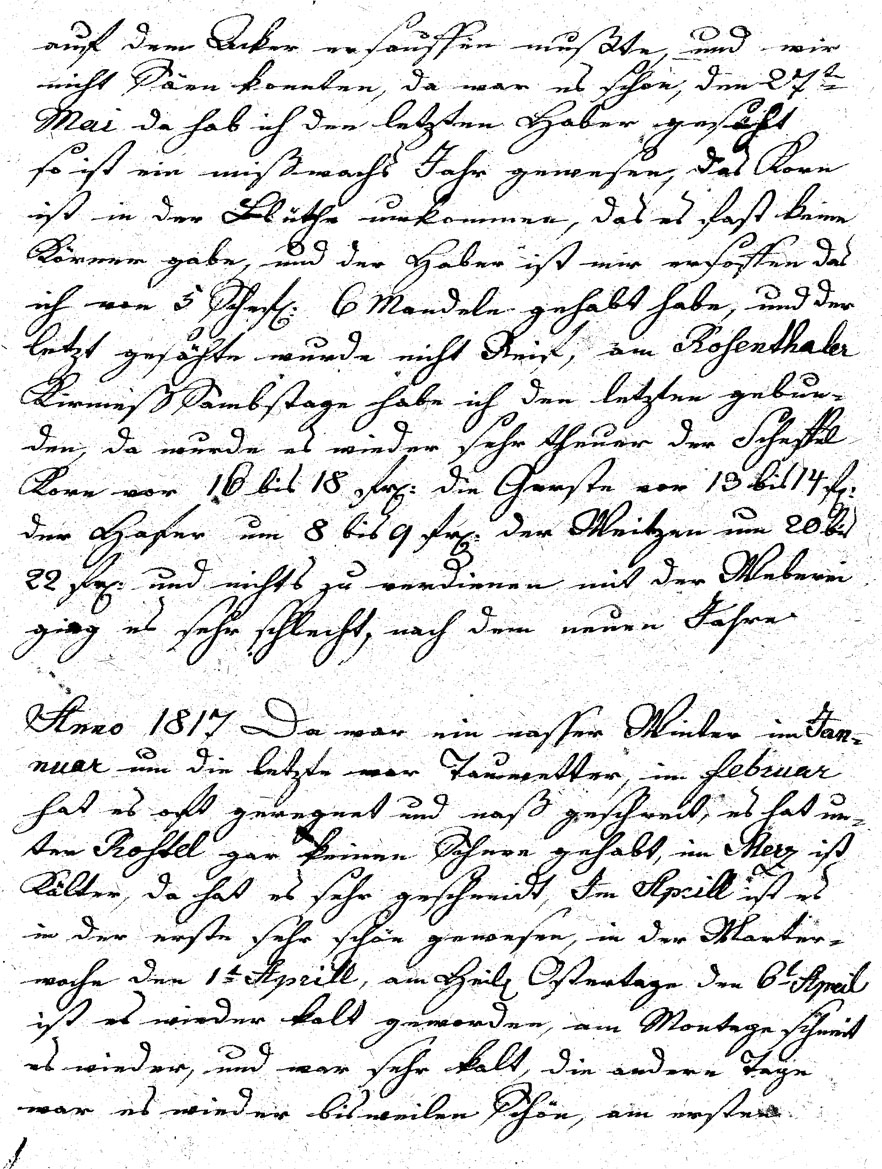 auf dem Acker ersauffen mußte, und wir
nicht Säen konnten, da war es schon, den 27t
Mai da hab ich den letzten Haber gesäht
so ist ein mißwachs Jahr gewesen, das Korn
ist in der Blüthe umkommen, das es fast keine
Körner gabe, und der Haber ist mir ersoffen das
ich von 5 Scheff: 6 Mandeln gehabt habe, und der
letzt gesähte wurde nicht Reif, am Rosenthaler
Kirmeß Sambstage habe ich den letzten gebun=
den, da wurde es wieder sehr theuer der Scheffel
Korn vor 16 bis 18 frx: die Gerste vor 13 bis 14 fx:
der Hafer um 8 bis 9 frx: der Weitzen um 20 bis
22 frx: und nichts zu verdienen mit der Weberei
ging es sehr schlecht, nach dem neuen Jahre
Anno 1817 Da war ein nasser Winter im Jan=
nuar um die letzte war Tauwetter, im februar
hat es oft geregnet und naß geschneit, es hat un=
ten Rostel gar keinen Schnee gehabt, im Merz ist
Kälter, da hat es sehr geschneidt, Im Aprill ist es
in der erste sehr schön gewesen, in der Marter=
woche den 1t Aprill, am Heilg Ostertage den 6t April
ist es wieder kalt geworden, am Montage schneit
es wieder, und war sehr kalt, die andern Tage
war es wieder bisweilen Schön, am ersten